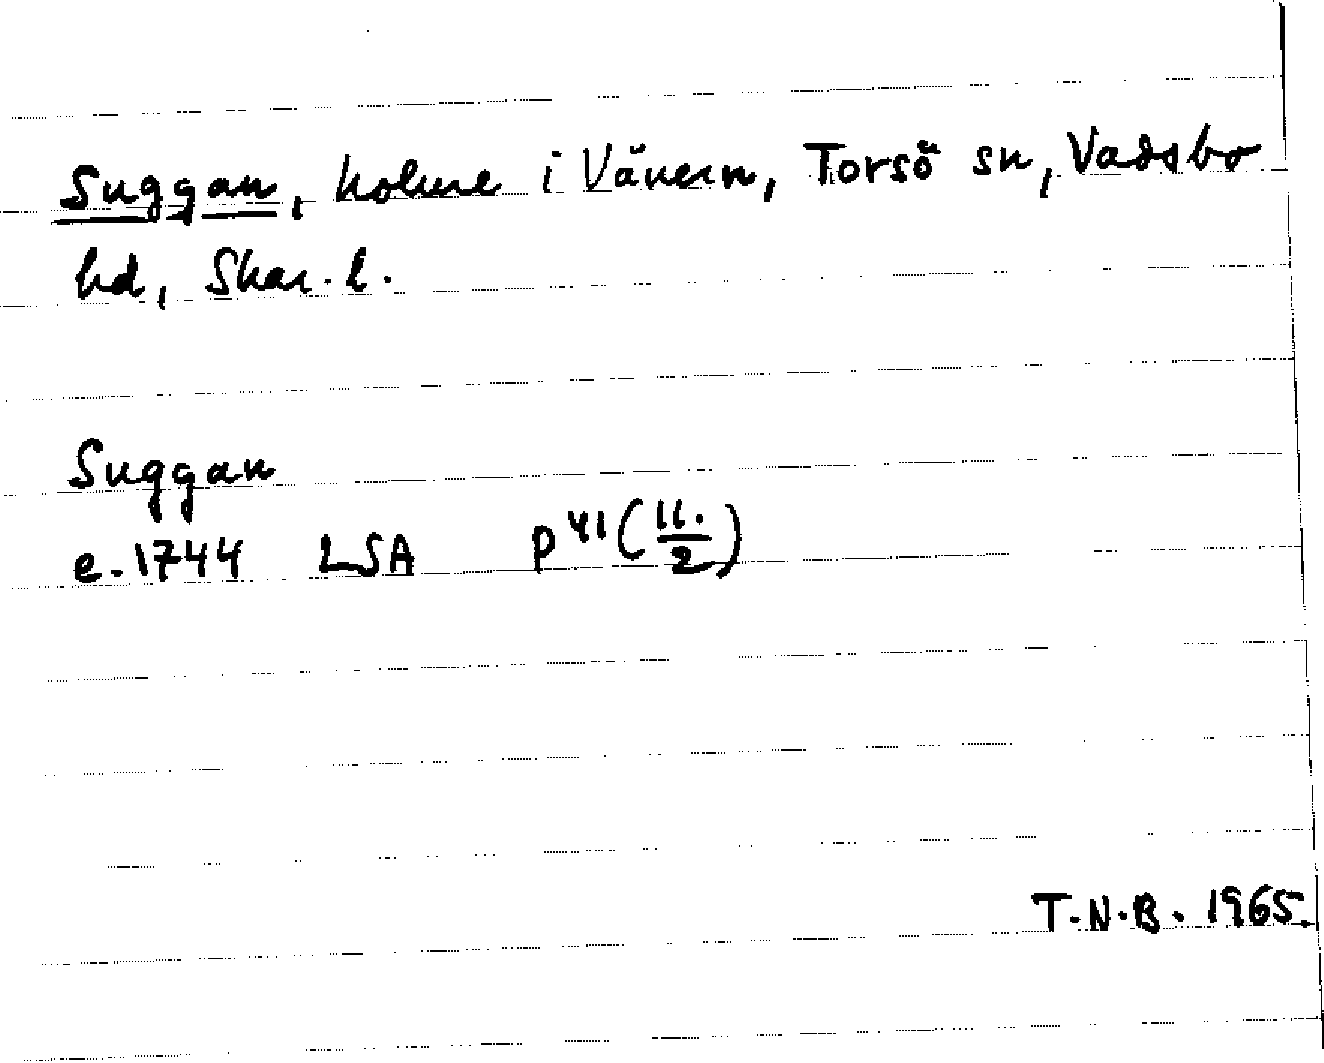 Suggan, holme i Vänern, Torsö sn, Vadsbo
hd, Skar. l.
Suggan
e. 1744 LSA P 41 (11./2)
T.N.B. 1965.